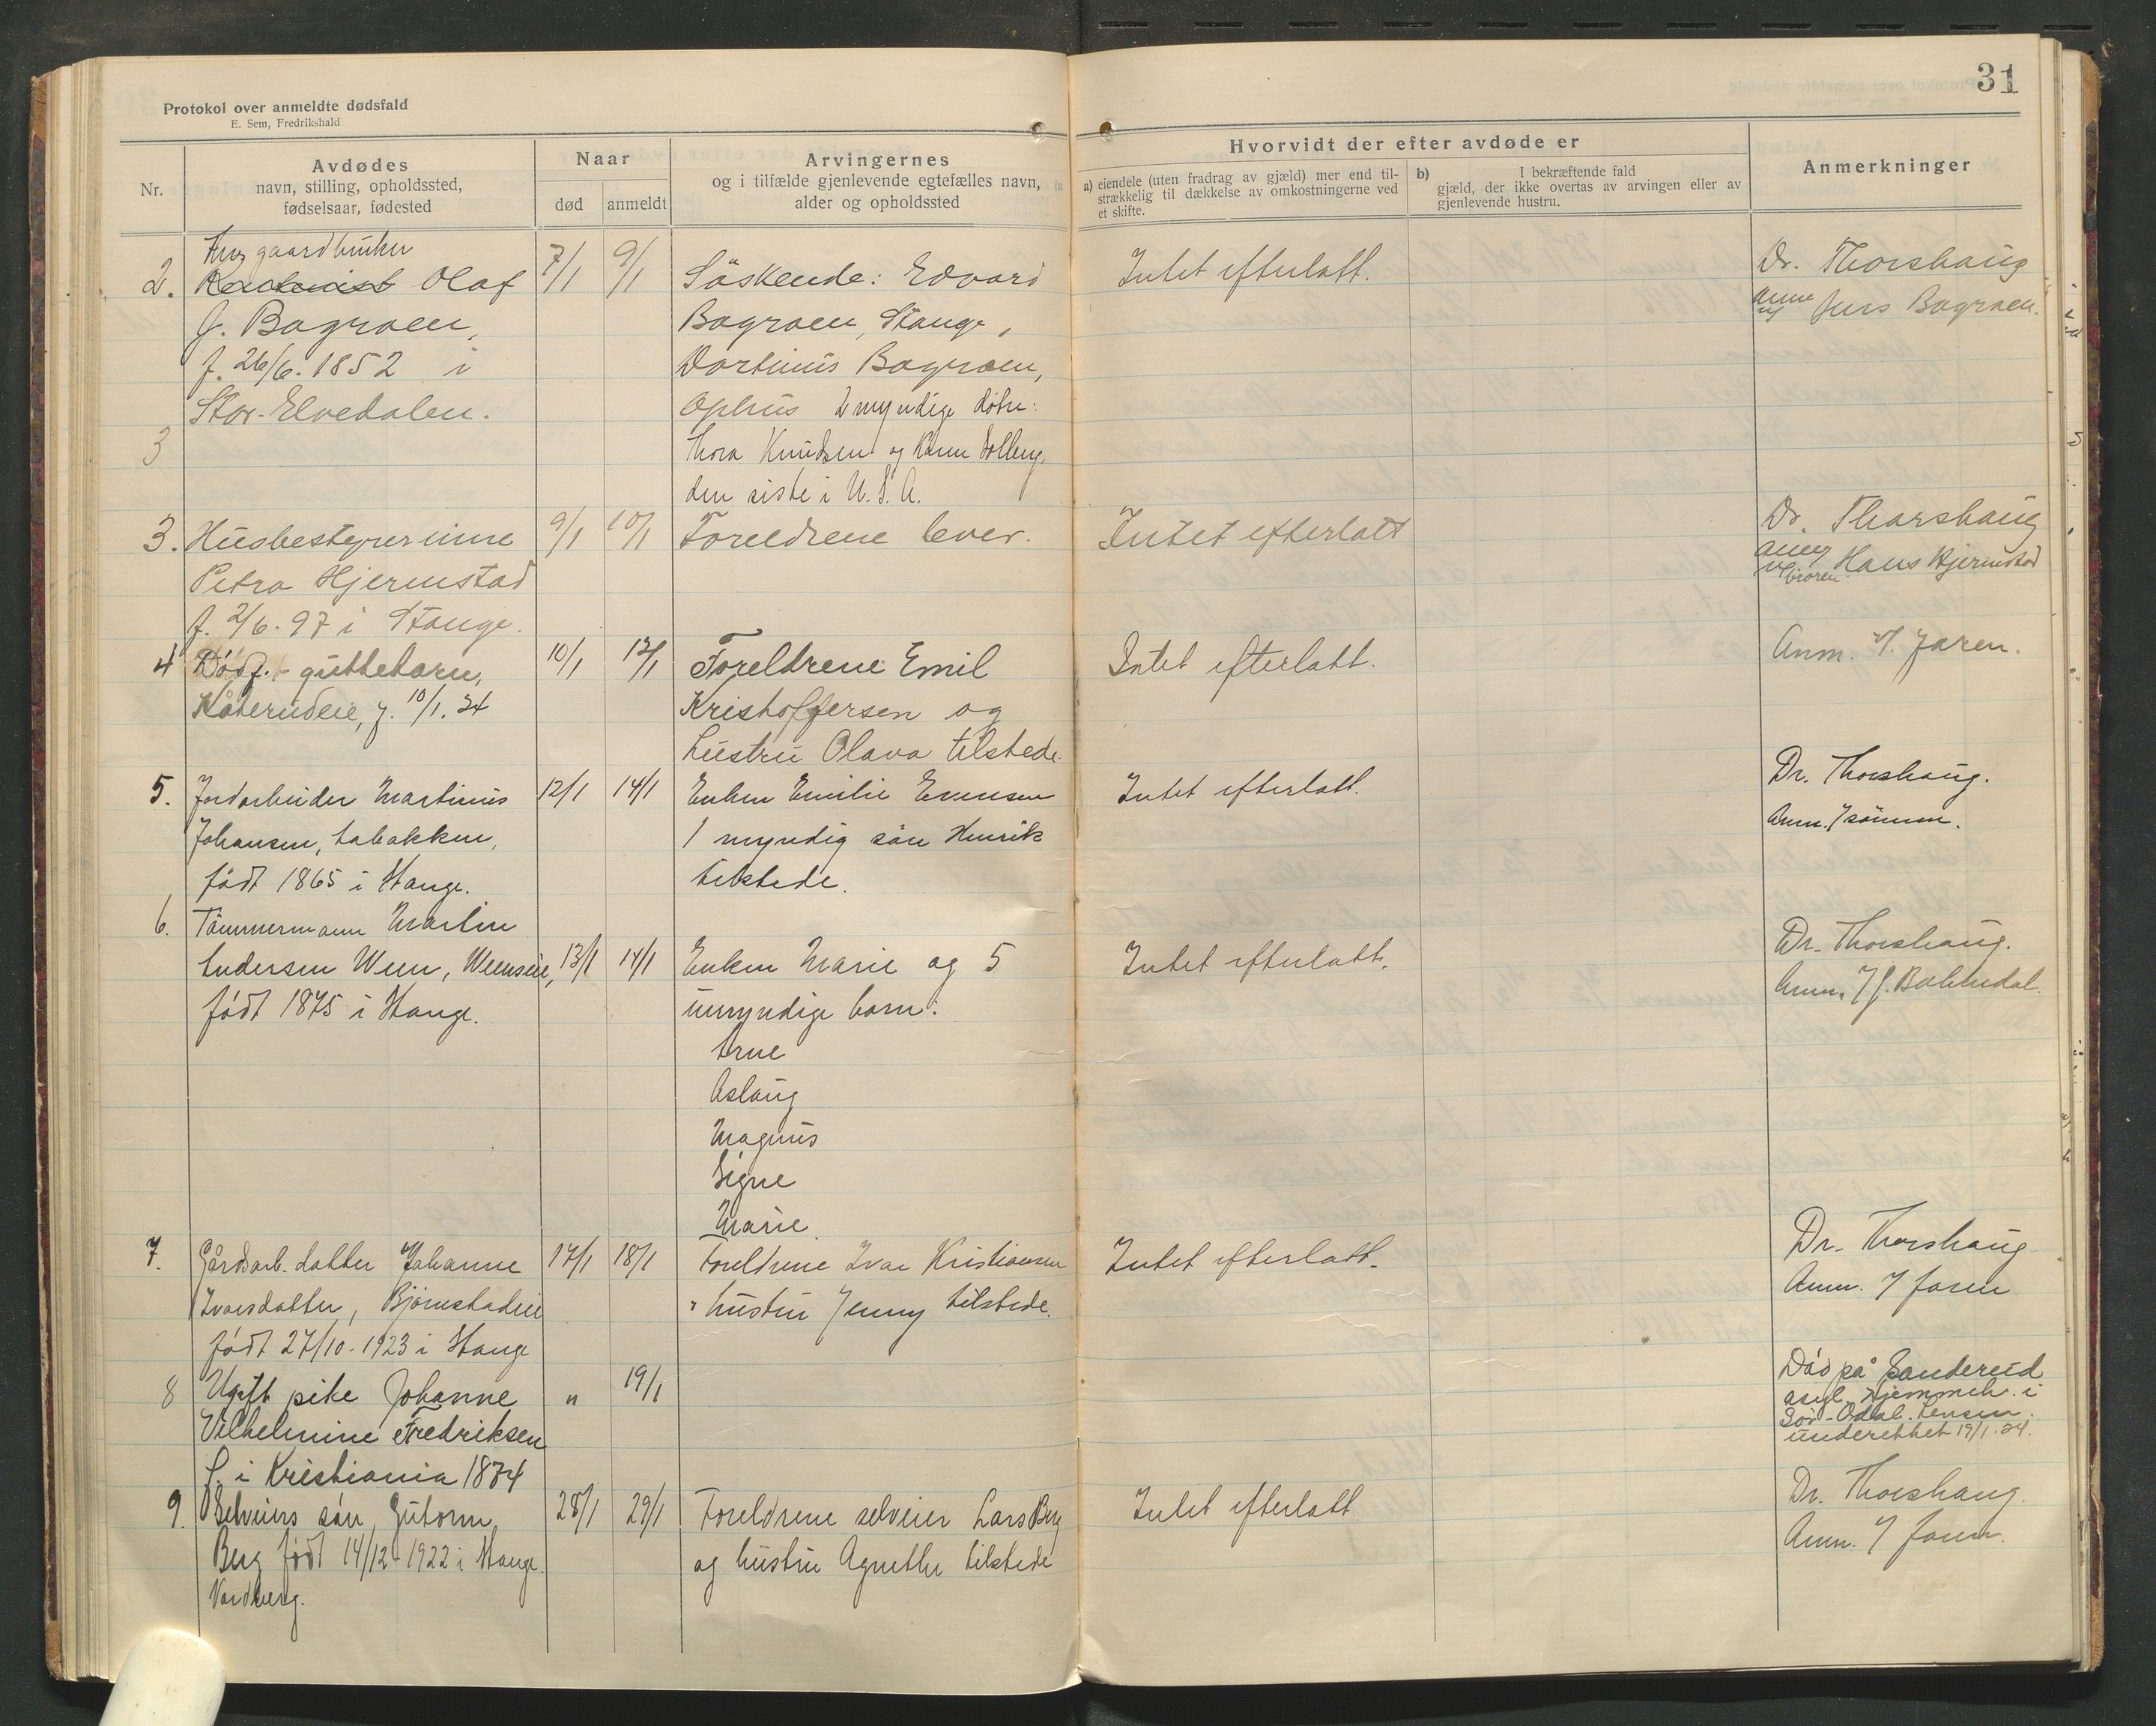 31
Protokol over anmeldte dødsfald
E. Sem, Fredrikshald
Nr.
Avdødes
navn, stilling, opholdssted,
fødselsaar, fødested
Naar
død
anmeldt
Arvingernes
og i tilfælde gjenlevende egtefælles navn,
alder og opholdssted
Hvorvidt der efter avdøde er
a) eiendele (uten fradrag av gjæld) mer end til-
strækkelig til dækkelse av omkostningerne ved
et skifte.
b) I bekræftende fald
gjæld, der ikke overtas av arvingen eller av
gjenlevende hustru.
Anmerkninger
gaardbruker
2. Olaf
J. Bagroen,
f. 26/6. 1852 i
Stor-Elvedalen.
7/1
9/1
Söskende: Edvard
Bagroen, Stange,
Martinus Bagroen,
Ophus 2 myndige døtre:
Thora Knudsen og Karen Solberg,
den siste i U.S.A.
Intet efterlatt.
Dr. Thorshaug
Jens Bagroen.
3
3. Husbestyrerinne
Petra Hjermstad
f. 2/6. 97 i Stange.
9/1
10/1
Foreldrene lever.
Intet efterlatt
Dr. Thorshaug
anm v/ broren Hans Hjermstad
4 Dödf. guttebarn,
Kåterudeie, f. 10/1. 24
10/1
12/1
Foreldrene Emil
Kristoffersen og
hustru Olava tilstede.
Intet efterlatt.
Anm. v/. faren.
5. Jordarbeider Martinus
Johansen, Labakken,
født 1865 i Stange.
12/1
14/1
Enken Emilie Evensen
1 myndig sön Henrik
tilstede.
Intet efterlatt.
Dr. Thorshaug.
Anm. / sönnen.
6. Tömmermann Martin
Andersen Ween, Weenseie,
född 1875 i Stange.
13/1
14/1
Enken Marie og 5
umyndige barn:
Arne
Aslaug
Magnus
Signe
Marie.
Intet efterlatt.
Dr. Thorshaug.
Anm. / J. Bakkedal.
7. Gårdsarb. datter Johanne
Ivarsdatter, Bjørnstadeie
född 27/10-1923 i Stange
17/1
18/1
Foreldrene Ivar Kristiansen
" hustru Jenny tilstede.
Intet efterlatt.
Dr. Thorshaug
Anm. / faren
8 Ugift pike Johanne
Vilhelmine Fredriksen
f. i Kristiania 1874
"
19/1
Död på Sandereid
asyl, hjemmeh. i
Sör-Odal. Lensm.
underettet 19/1.24.
9. Selveiers sön Gutorm
Berg född 14/12-1922 i Stange.
Nordberg.
28/1
29/1
Foreldrene selveier Lars Berg
og hustru Agnethe tilstede
Intet efterlatt
Dr. Thorshaug.
Anm. / faren.